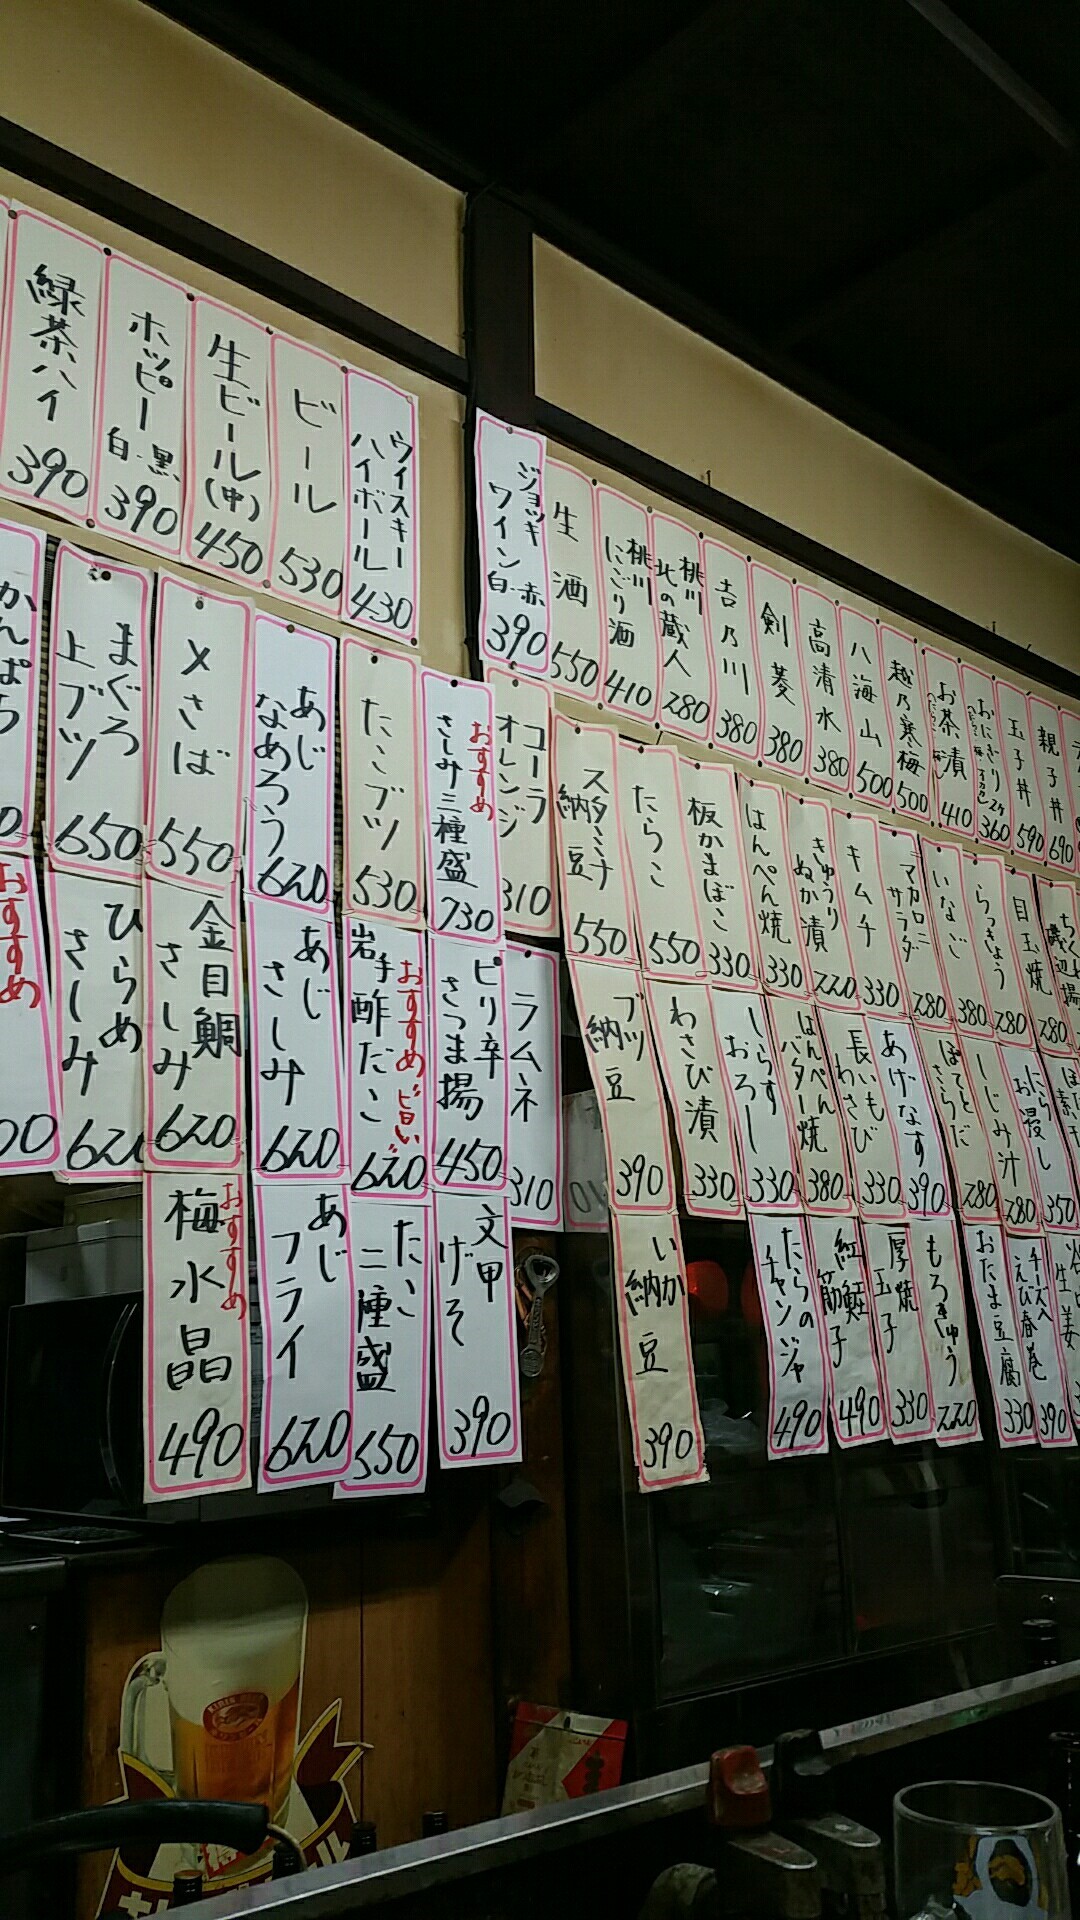 緑茶ハイ 390
ホッピー 白・黒 390
生ビール(中) 450
ビール 530
ウイスキーハイボール 430
ジョッキワイン 白・赤 390
生酒 550
桃川にごり酒 410
桃川北の蔵人 280
吉乃川 380
剣菱 380
高清水 380
八海山 500
越乃寒梅 500
お茶漬 410
おにぎり 360
玉子丼 590
親子丼 690
かんぱち
まぐろ上ブツ 650
〆さば 550
あじなめろう 620
たこブツ 530
おすすめ さしみ三種盛 730
コーラ オレンジ 310
スタミナ納豆 550
たらこ 550
板かまぼこ 330
はんぺん焼 330
きゅうりぬか漬 220
キムチ 330
マカロニサラダ 280
いなご 380
らっきょう 280
目玉焼 280
ちくわ磯辺揚
おすすめ
ひらめさしみ 620
金目鯛さしみ 620
あじさしみ 620
おすすめ 旨い 岩手酢だこ 620
ピリ辛さつま揚 450
ラムネ 310
ブツ納豆 390
わさび漬 330
しらすおろし 330
はんぺんバター焼 380
長いもわさび 330
あげなす 390
ぽてとさらだ 280
しじみ汁 280
にらお浸し 350
おすすめ 梅水晶 490
あじフライ 620
たこ二種盛 550
文甲げそ 390
いか納豆 390
たらのチャンジャ 490
紅鮭筋子 490
厚焼玉子 330
もろきゅう 220
おたま豆腐 330
チーズ入えび春巻 390
KIRIN